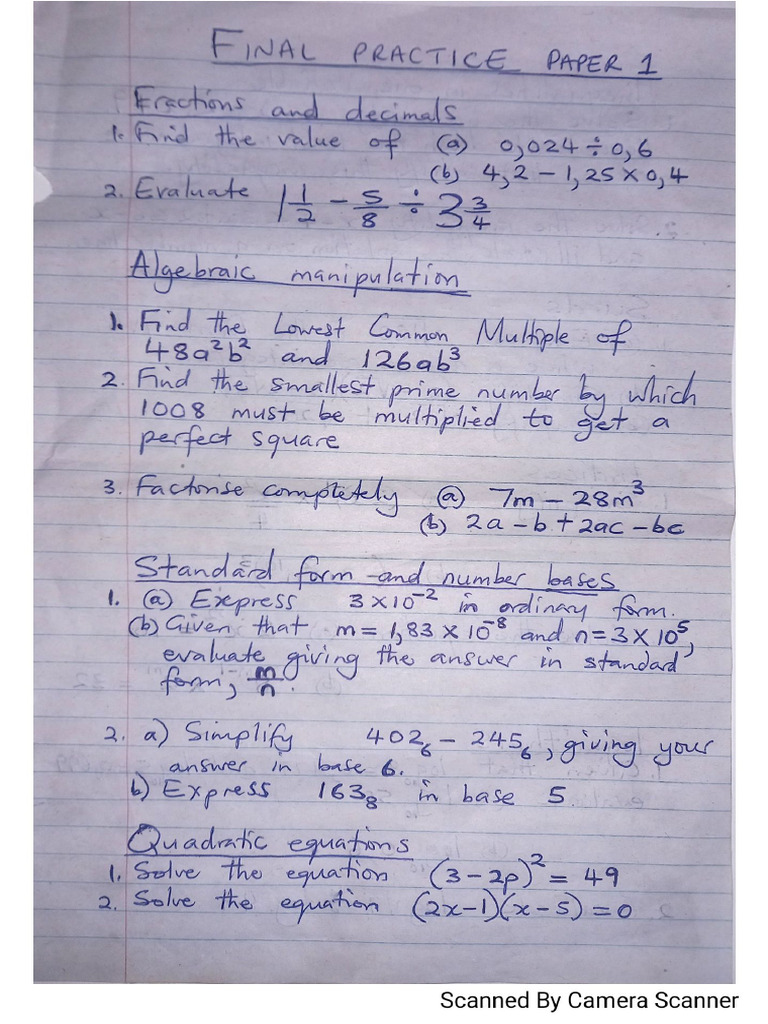 FINAL PRACTICE PAPER 1
Fractions and decimals
1. Find the value of (a) 0,024 ÷ 0,6
(b) 4,2 − 1,25 × 0,4
2. Evaluate 1 1/2 − 5/8 ÷ 3 3/4
Algebraic manipulation
1. Find the Lowest Common Multiple of
48a²b² and 126ab³
2. Find the smallest prime number by which
1008 must be multiplied to get a
perfect square
3. Factorise completely (a) 7m − 28m³
(b) 2a − b + 2ac − bc
Standard form and number bases
1. (a) Express 3 × 10⁻² in ordinary form.
(b) Given that m = 1,83 × 10⁻⁸ and n = 3 × 10⁵,
evaluate giving the answer in standard
form, m/n.
2. a) Simplify 402₆ − 245₆, giving your
answer in base 6.
b) Express 163₈ in base 5.
Quadratic equations
1. Solve the equation (3 − 2p)² = 49
2. Solve the equation (2x−1)(x−5) = 0
Scanned By Camera Scanner